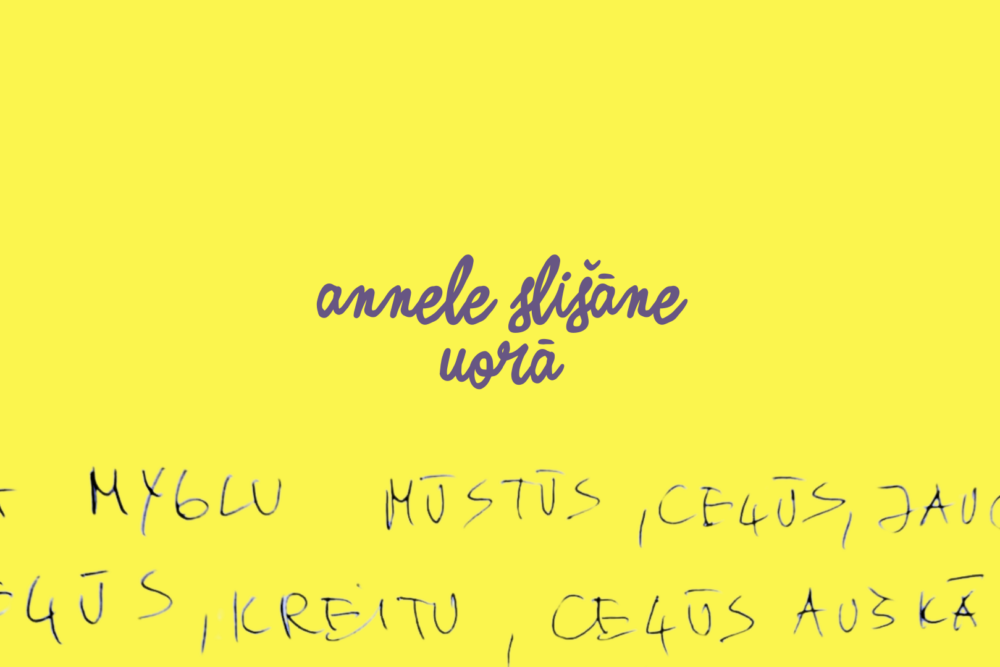 annele slišāne
uorā
MYGLU MŪSTŪS, CEĻŪS,
EĻŪS, KREITU, CEĻŪS